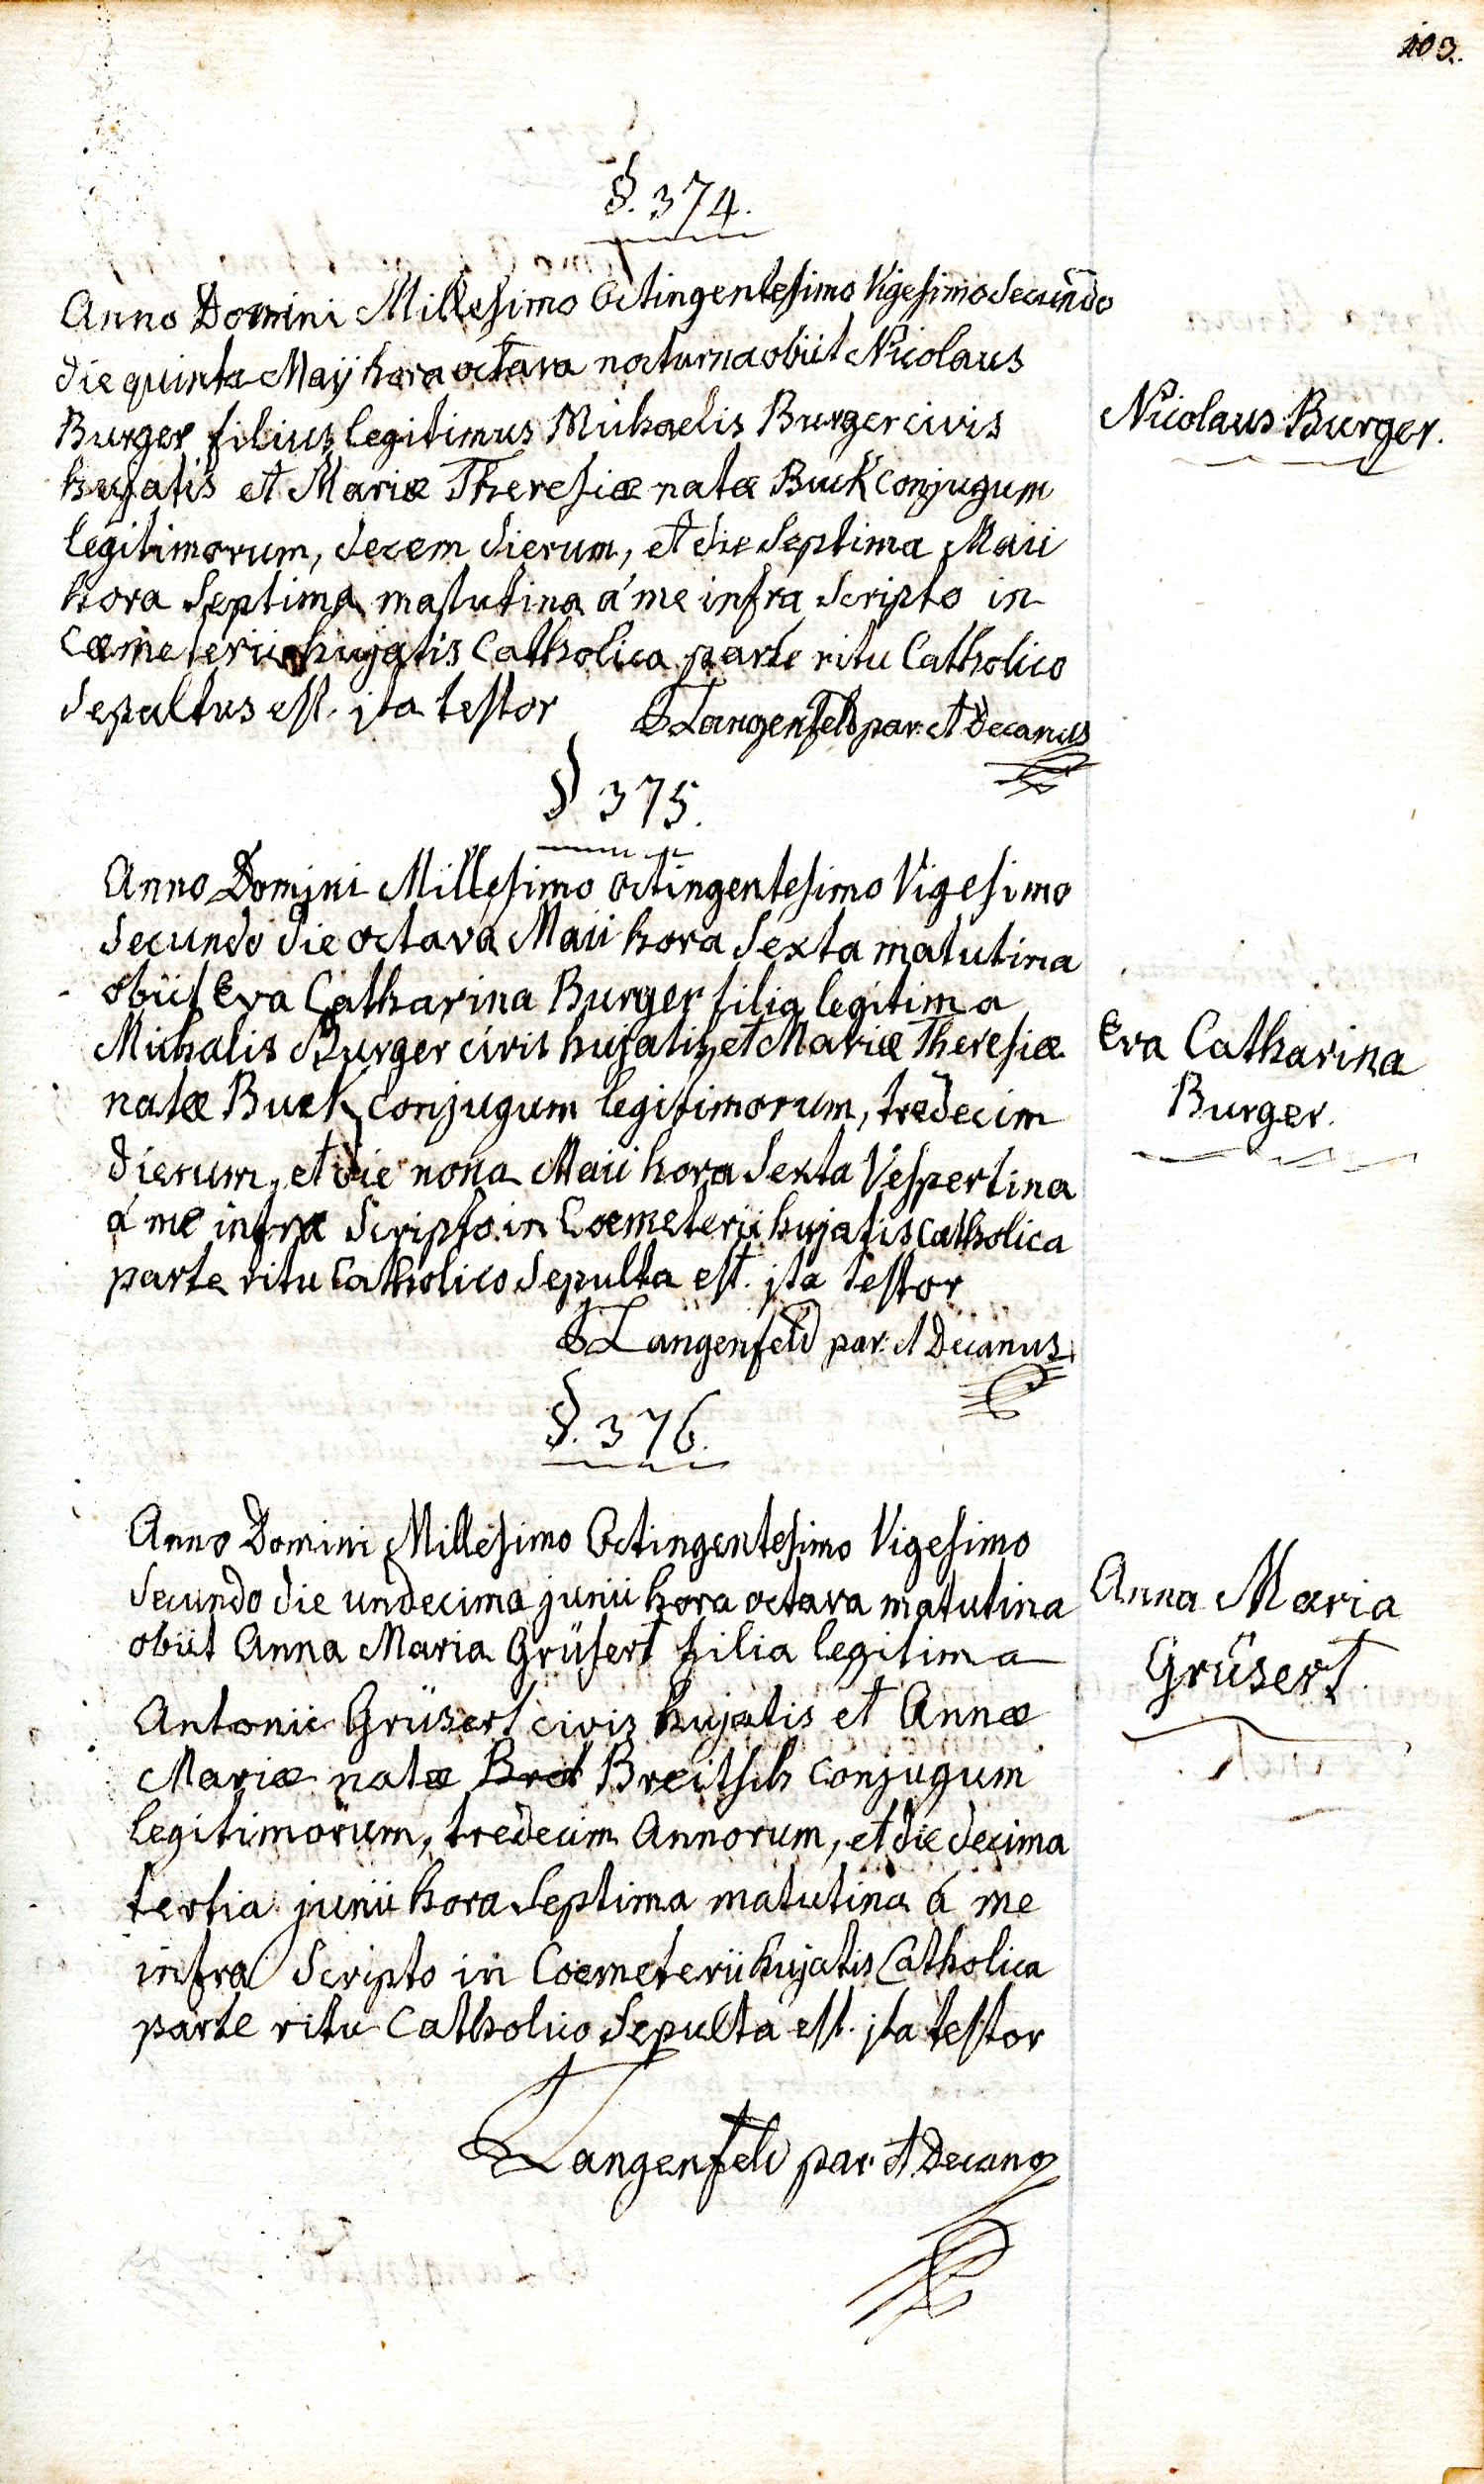 103.
§. 374.
Anno Domini Millesimo Octingentesimo Vigesimo Secundo
die quinta Maÿ hora octava nocturna obiit Nicolaus
Burger filius legitimus Michaelis Burger civis
hujatis et Mariæ Theresiæ natæ Buck conjugum
legitimorum, decem dierum, et die Septima Maii
hora Septima matutina á me infra Scripto in
Cœmeterii hujatis Catholica parte ritu Catholico
Sepultus est. jta testor
Langenfeld par. et Decanus
Nicolaus Burger.
§ 375.
Anno Domini Millesimo octingentesimo Vigesimo
Secundo die octava Maii hora Sexta matutina
obiit Eva Catharina Burger filia legitima
Michalis Burger civis hujatis et Mariæ Theresiæ
natæ Buck conjugum legitimorum, tredecim
dierum, et die nona Maii hora Sexta Vespertina
á me infra Scripto in Cœmeterii hujatis Catholica
parte ritu Catholico Sepulta est. jta testor
Langenfeld par. et Decanus
Eva Catharina
Burger.
§. 376.
Anno Domini Millesimo Octingentesimo Vigesimo
Secundo die undecima junii hora octava matutina
obiit Anna Maria Grüsert filia legitima
Antonii Grüsert civis hujatis et Annæ
Mariæ natæ Breitsch conjugum
legitimorum, tredecim Annorum, et die decima
tertia junii hora Septima matutina á me
infra Scripto in Cœmeterii hujatis Catholica
parte ritu Catholico Sepulta est. jta testor
Langenfeld par. et Decanus
Anna Maria
Grüsert.